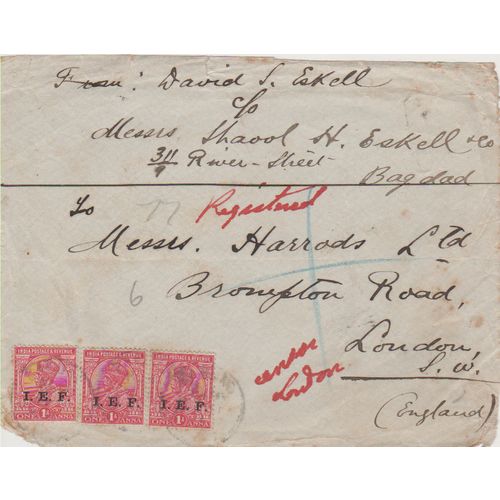 From: David S. Eskell
c/o
Messrs. Shaool H. Eskell & Co
3/11 River-Street
Bagdad
To
77 Registered
Messrs. Harrods Ltd
6 Brompton Road,
London,
S. W.
(England)
censor
London
INDIA POSTAGE & REVENUE
I.E.F.
1A
ONE ANNA
INDIA POSTAGE & REVENUE
I.E.F.
1A
ONE ANNA
INDIA POSTAGE & REVENUE
I.E.F.
1A
ONE ANNA